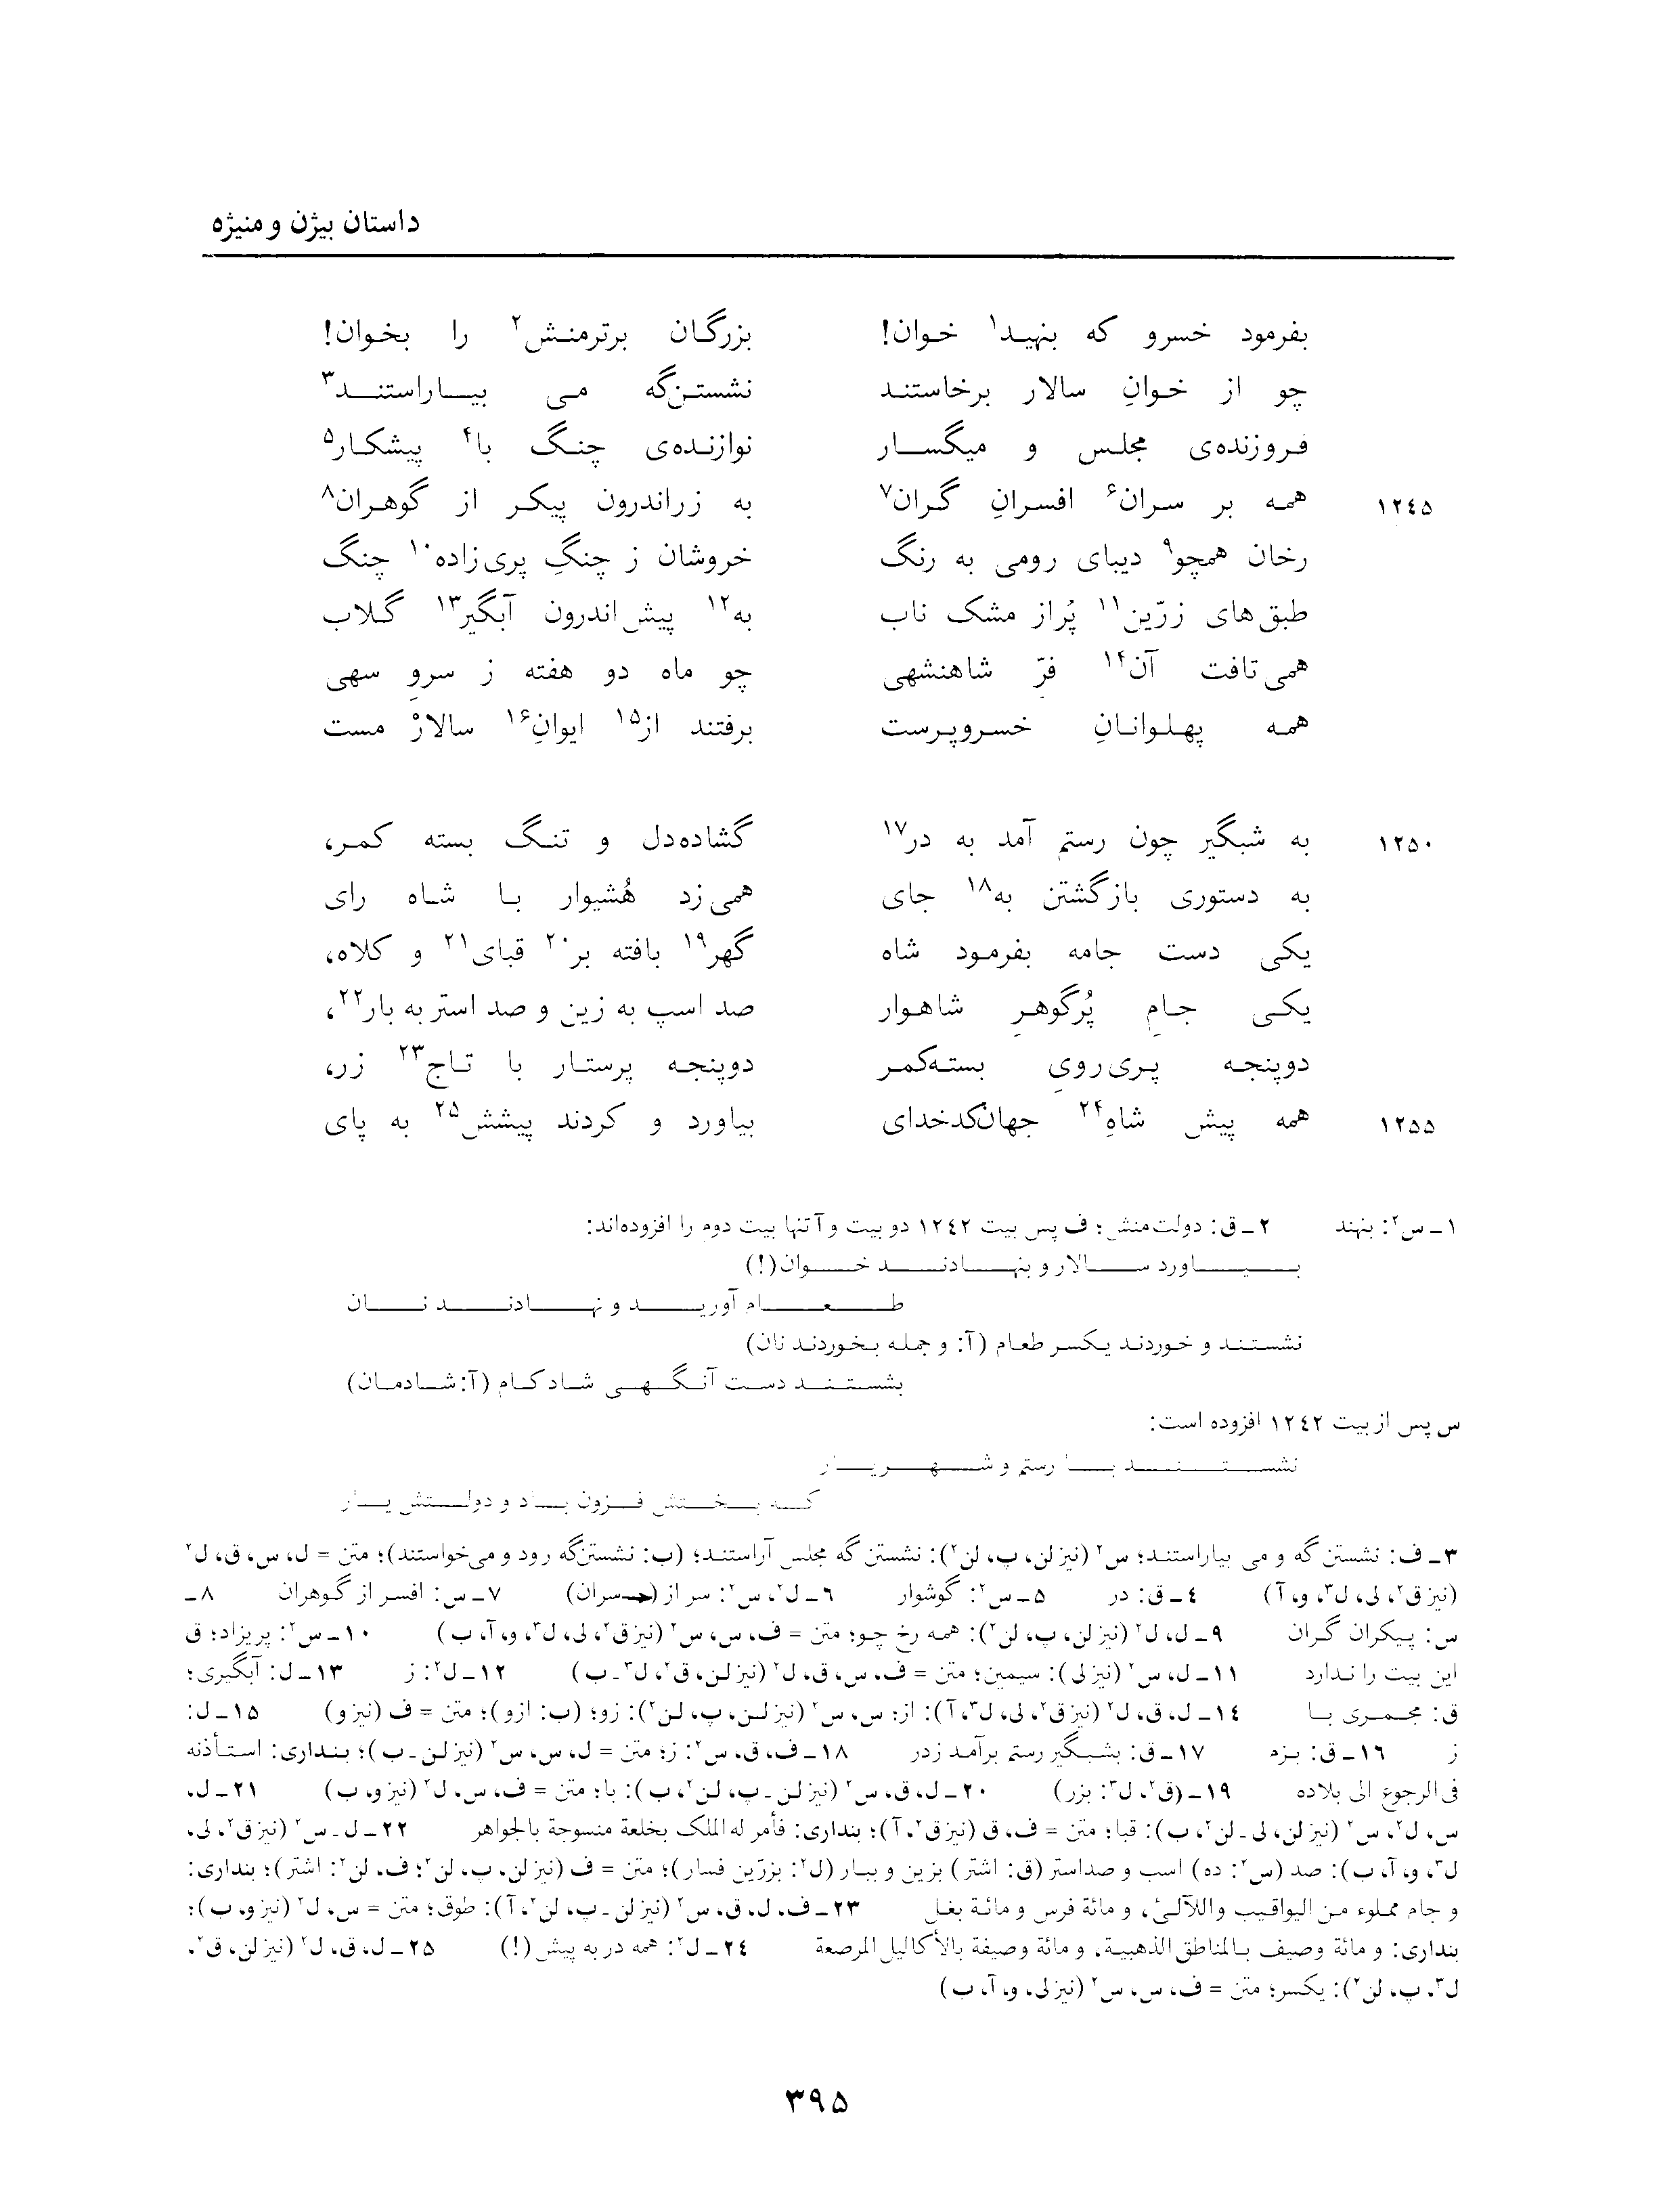 داستان بیژن و منیژه
بفرمود خسرو که بنهید۱ خوان! بزرگان برترمنش۲ را بخوان!
چو از خوانِ سالار برخاستند نشستن‌گه می بیاراستند۳
فروزنده‌ی مجلس و میگسار نوازنده‌ی چنگ با۴ پیشکار۵
۱۲۴۵ همه بر سران۶ افسرانِ گران۷ به زراندرون پیکر از گوهران۸
رخان همچو۹ دیبای رومی به رنگ خروشان ز چنگِ پری‌زاده۱۰ چنگ
طبق‌های زرّین۱۱ پُراز مشک ناب به۱۲ پیش‌اندرون آبگیر۱۳ گلاب
همی‌تافت آن۱۴ فرّ شاهنشهی چو ماه دو هفته ز سروِ سهی
همه پهلوانانِ خسروپرست برفتند از۱۵ ایوانِ۱۶ سالارْ مست
۱۲۵۰ به شبگیر چون رستم آمد به در۱۷ گشاده‌دل و تنگ بسته کمر،
به دستوری بازگشتن به۱۸ جای همی‌زد هُشیوار با شاه رای
یکی دست جامه بفرمود شاه گهر۱۹ بافته بر۲۰ قبای۲۱ و کلاه،
یکی جامِ پُرگوهرِ شاهوار صد اسپ به زین و صد استر به بار۲۲،
دوپنجه پری‌رویِ بسته‌کمر دوپنجه پرستار با تاج۲۳ زر،
۱۲۵۵ همه پیش شاهِ۲۴ جهان‌کدخدای بیاورد و کردند پیشش۲۵ به پای
۱ـ س۲: بنهند ۲ـ ق: دولت‌منش؛ ف پس بیت ۱۲۴۲ دو بیت و آ تنها بیت دوم را افزوده‌اند:
بیاورد سالار و بنهادند خوان(!)
طعام آورید و نهادند نان
نشستند و خوردند یکسر طعام (آ: و جمله بخوردند نان)
بشستند دست آنگهی شادکام (آ: شادمان)
س پس از بیت ۱۲۴۲ افزوده است:
نشستند با رستم و شهریار
که بختش فزون باد و دولتش یار
۳ـ ف: نشستن گه و می بیاراستند؛ س۲ (نیز لن، پ، لن۲): نشستن گه مجلس آراستند؛ (ب: نشستن‌گه رود و می‌خواستند)؛ متن = ل، س، ق، ل۲
(نیز ق۲، لی، ل۳، و، آ) ۴ـ ق: در ۵ـ س۲: گوشوار ۶ـ ل۲، س۲: سر از (← سران) ۷ـ س: افسر از گوهران ۸ـ
س: پیکران گران ۹ـ ل، ل۲ (نیز لن، پ، لن۲): همه رخ چو؛ متن = ف، س، س۲ (نیز ق۲، لی، ل۳، و، آ، ب) ۱۰ـ س۲: پریزاد؛ ق
این بیت را ندارد ۱۱ـ ل، س۲ (نیز لی): سیمین؛ متن = ف، س، ق، ل۲ (نیز لن، ق۲، ل۳ـ ب) ۱۲ـ ل۲: ز ۱۳ـ ل: آبگیری؛
ق: مجمری با ۱۴ـ ل، ق، ل۲ (نیز ق۲، لی، ل۳، آ): از؛ س، س۲ (نیز لن، پ، لن۲): زو؛ (ب: ازو)؛ متن = ف (نیز و) ۱۵ـ ل:
ز ۱۶ـ ق: بزم ۱۷ـ ق: بشبگیر رستم برآمد زدر ۱۸ـ ف، ق، س۲: ز؛ متن = ل، س، س۲ (نیز لن ـ ب)؛ بنداری: استأذنه
فی الرجوع الی بلاده ۱۹ـ (ق۲، ل۳: بزر) ۲۰ـ ل، ق، س۲ (نیز لن ـ پ، لن۲، ب): با؛ متن = ف، س، ل۲ (نیز و، ب) ۲۱ـ ل،
س، ل۲، س۲ (نیز لن، لی ـ لن۲، ب): قبا؛ متن = ف، ق (نیز ق۲، آ)؛ بنداری: فأمر له الملک بخلعة منسوجة بالجواهر ۲۲ـ ل ـ س۲ (نیز ق۲، لی،
ل۳، و، آ، ب): صد (س۲: ده) اسب و صداستر (ق: اشتر) بزین و ببار (ل۲: بزرّین فسار)؛ متن = ف (نیز لن، پ، لن۲؛ ف، لن۲: اشتر)؛ بنداری:
و جام مملوء من الیواقیب واللآلیٔ، و مائة فرس و مائة بغل ۲۳ـ ف، ل، ق، س۲ (نیز لن ـ پ، لن۲، آ): طوق؛ متن = س، ل۲ (نیز و، ب)؛
بنداری: و مائة وصیف بالمناطق الذهبیة، و مائة وصیفة بالأکالیل المرصعة ۲۴ـ ل۲: همه در به پیش(!) ۲۵ـ ل، ق، ل۲ (نیز لن، ق۲،
ل۳، پ، لن۲): یکسر؛ متن = ف، س، س۲ (نیز لی، و، آ، ب)
۳۹۵